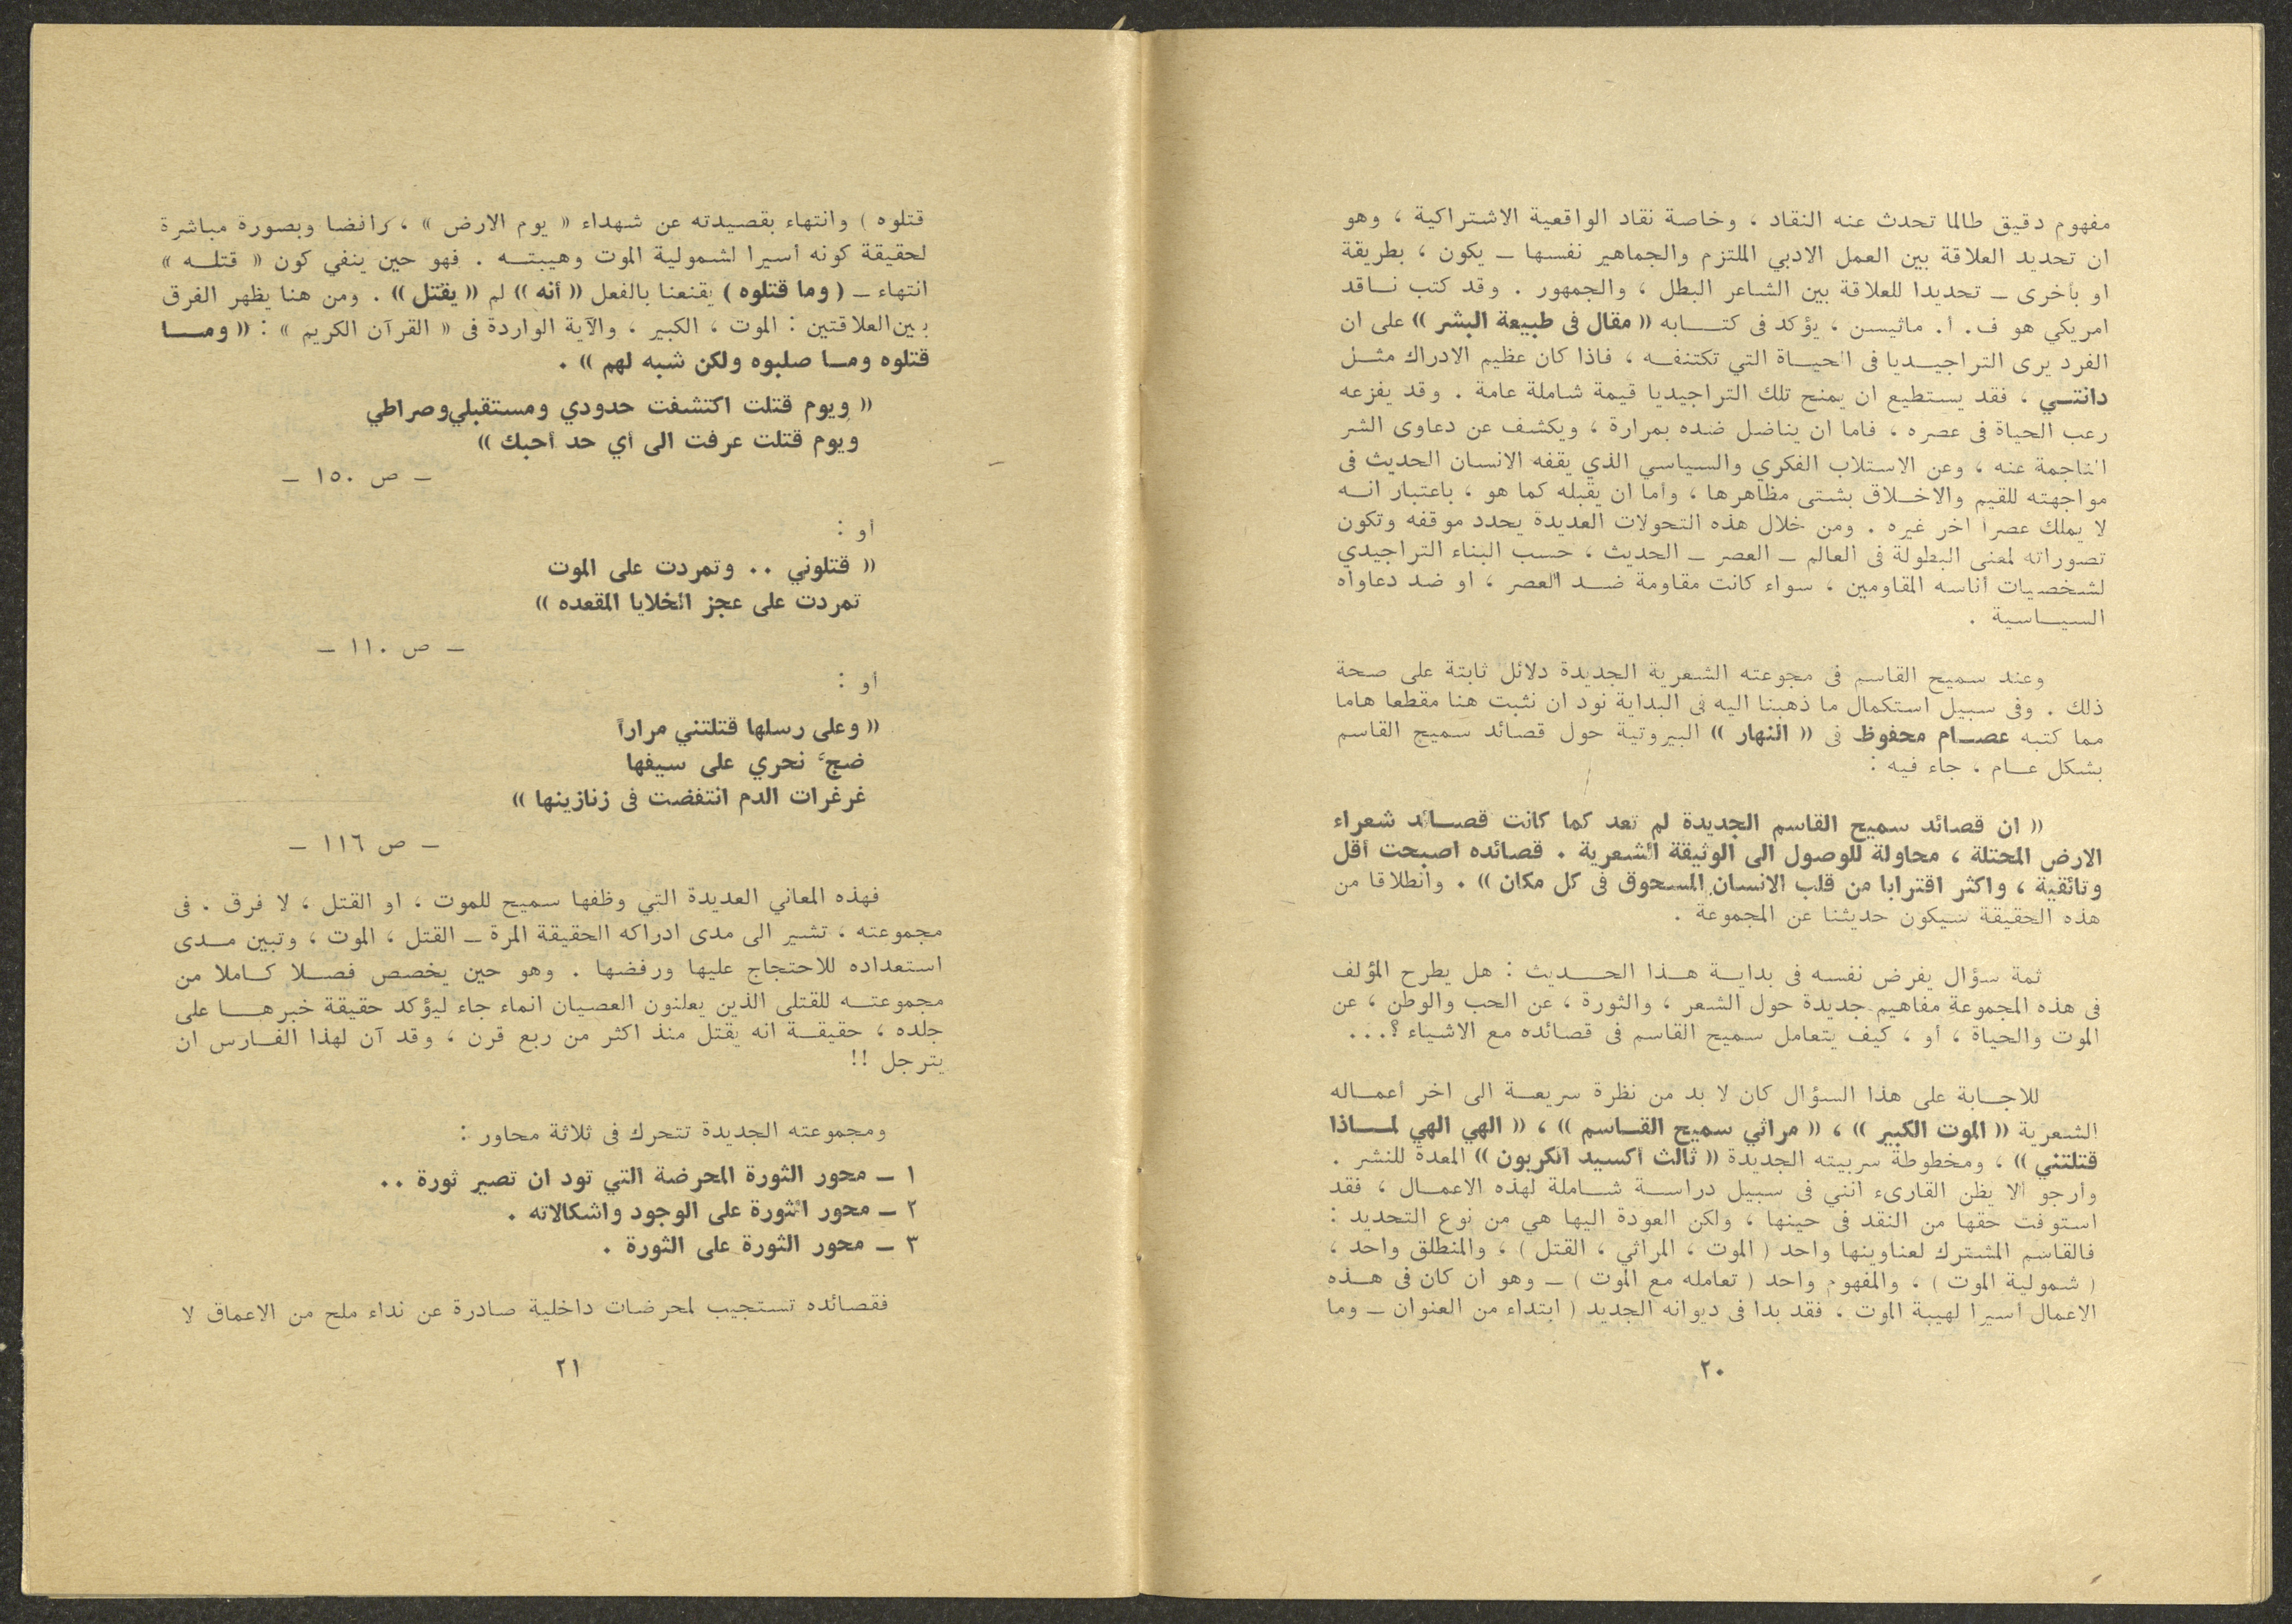 مفهوم دقيق طالما تحدث عنه النقاد ، وخاصة نقاد الواقعية الاشتراكية ، وهو
ان تحديد العلاقة بين العمل الادبي الملتزم والجماهير نفسها ــ يكون ، بطريقة
او بأخرى ــ تحديدا للعلاقة بين الشاعر البطل ، والجمهور . وقد كتب ناقد
امريكي هو ف. أ. ماثيسن ، يؤكد فى كتابه (( مقال فى طبيعة البشر )) على ان
الفرد يرى التراجيديا فى الحياة التي تكتنفه ، فاذا كان عظيم الادراك مثل
دانتي ، فقد يستطيع ان يمنح تلك التراجيديا قيمة شاملة عامة . وقد يفزعه
رعب الحياة فى عصره ، فاما ان يناضل ضده بمرارة ، ويكشف عن دعاوى الشر
الناجمة عنه ، وعن الاستلاب الفكري والسياسي الذي يقفه الانسان الحديث فى
مواجهته للقيم والاخلاق بشتى مظاهرها ، وأما ان يقبله كما هو ، باعتبار انه
لا يملك عصرا آخر غيره . ومن خلال هذه التحولات العديدة يحدد موقفه وتكون
تصوراته لمعنى البطولة فى العالم ــ العصر ــ الحديث ، حسب البناء التراجيدي
لشخصيات أناسه المقاومين ، سواء كانت مقاومة ضد العصر ، او ضد دعاواه
السياسية .
وعند سميح القاسم فى مجوعته الشعرية الجديدة دلائل ثابتة على صحة
ذلك . وفى سبيل استكمال ما ذهبنا اليه فى البداية نود ان نثبت هنا مقطعا هاما
مما كتبه عصام محفوظ فى (( النهار )) البيروتية حول قصائد سميح القاسم
بشكل عام ، جاء فيه :
(( ان قصائد سميح القاسم الجديدة لم تعد كما كانت قصائد شعراء
الارض المحتلة ، محاولة للوصول الى الوثيقة الشعرية . قصائده اصبحت أقل
وثائقية ، واكثر اقترابا من قلب الانسان المسحوق فى كل مكان )) . وانطلاقا من
هذه الحقيقة سيكون حديثنا عن المجموعة .
ثمة سؤال يفرض نفسه فى بداية هذا الحديث : هل يطرح المؤلف
فى هذه المجموعة مفاهيم جديدة حول الشعر ، والثورة ، عن الحب والوطن ، عن
الموت والحياة ، أو ، كيف يتعامل سميح القاسم فى قصائده مع الاشياء ؟...
للاجابة على هذا السؤال كان لا بد من نظرة سريعة الى اخر أعماله
الشعرية (( الموت الكبير )) ، (( مراثي سميح القاسم )) ، (( الهي الهي لماذا
قتلتني )) ، ومخطوطة سربيته الجديدة (( ثالث أكسيد الكربون )) المعدة للنشر .
وارجو الا يظن القارىء انني فى سبيل دراسة شاملة لهذه الاعمال ، فقد
استوفت حقها من النقد فى حينها ، ولكن العودة اليها هي من نوع التحديد :
فالقاسم المشترك لعناوينها واحد ( الموت ، المراثي ، القتل ) ، والمنطلق واحد ،
( شمولية الموت ) ، والمفهوم واحد ( تعامله مع الموت ) ــ وهو ان كان فى هذه
الاعمال أسيرا لهيبة الموت ، فقد بدا فى ديوانه الجديد ( ابتداء من العنوان ــ وما
٢٠
قتلوه ) وانتهاء بقصيدته عن شهداء « يوم الارض » ، رافضا وبصورة مباشرة
لحقيقة كونه أسيرا لشمولية الموت وهيبته . فهو حين ينفي كون « قتله »
انتهاء ــ ( وما قتلوه ) يقنعنا بالفعل (( أنه )) لم (( يقتل )) . ومن هنا يظهر الفرق
بين العلاقتين : الموت ، الكبير ، والآية الواردة فى « القرآن الكريم » : (( وما
قتلوه وما صلبوه ولكن شبه لهم )) .
(( ويوم قتلت اكتشفت حدودي ومستقبلي وصراطي
ويوم قتلت عرفت الى أي حد أحبك ))
ــ ص ١٥٠ ــ
أو :
(( قتلوني .. وتمردت على الموت
تمردت على عجز الخلايا المقعده ))
ــ ص ١١٠ ــ
أو :
(( وعلى رسلها قتلتني مراراً
ضجَّ نحري على سيفها
غرغرات الدم انتفضت فى زنازينها ))
ــ ص ١١٦ ــ
فهذه المعاني العديدة التي وظفها سميح للموت ، او القتل ، لا فرق . فى
مجموعته ، تشير الى مدى ادراكه الحقيقة المرة ــ القتل ، الموت ، وتبين مدى
استعداده للاحتجاج عليها ورفضها . وهو حين يخصص فصلا كاملا من
مجموعته للقتلى الذين يعلنون العصيان انماء جاء ليؤكد حقيقة خبرها على
جلده ، حقيقة انه يقتل منذ اكثر من ربع قرن ، وقد آن لهذا الفارس ان
يترجل !!
ومجموعته الجديدة تتحرك فى ثلاثة محاور :
١ ــ محور الثورة المحرضة التي تود ان تصير ثورة ..
٢ ــ محور الثورة على الوجود واشكالاته .
٣ ــ محور الثورة على الثورة .
فقصائده تستجيب لمحرضات داخلية صادرة عن نداء ملح من الاعماق لا
٢١